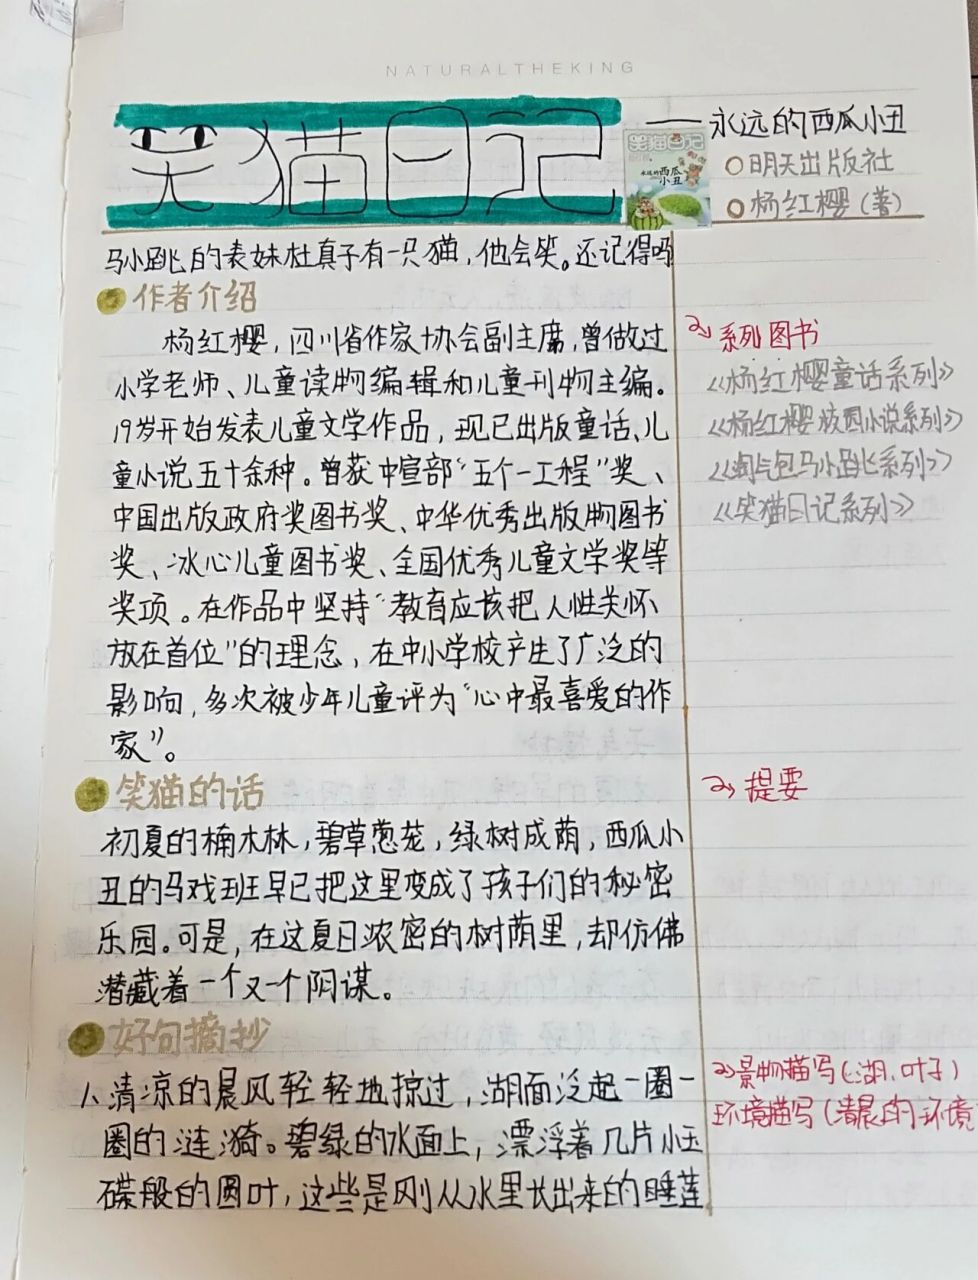 NATURALTHEKING
笑猫日记
——永远的西瓜小丑
笑猫日记
永远的西瓜
小丑
明天出版社
杨红樱(著)
马小跳的表妹杜真子有一只猫，他会笑。还记得吗
作者介绍
杨红樱，四川省作家协会副主席，曾做过
小学老师、儿童读物编辑和儿童刊物主编。
19岁开始发表儿童文学作品，现已出版童话、儿
童小说五十余种。曾获中宣部“五个一工程”奖、
中国出版政府奖图书奖、中华优秀出版物图书
奖、冰心儿童图书奖、全国优秀儿童文学奖等
奖项。在作品中坚持“教育应该把人性关怀
放在首位”的理念，在中小学校产生了广泛的
影响，多次被少年儿童评为“心中最喜爱的作
家”。
系列图书
《杨红樱童话系列》
《杨红樱校园小说系列》
《淘气包马小跳系列》
《笑猫日记系列》
笑猫的话
初夏的楠木林，碧草葱茏，绿树成荫，西瓜小
丑的马戏班早已把这里变成了孩子们的秘密
乐园。可是，在这夏日浓密的树荫里，却仿佛
潜藏着一个又一个阴谋。
提要
好句摘抄
1、清凉的晨风轻轻地掠过，湖面泛起一圈一
圈的涟漪。碧绿的水面上，漂浮着几片小玉
碟般的圆叶，这些是刚从水里长出来的睡莲
景物描写(湖、叶子)
环境描写(清晨的环境